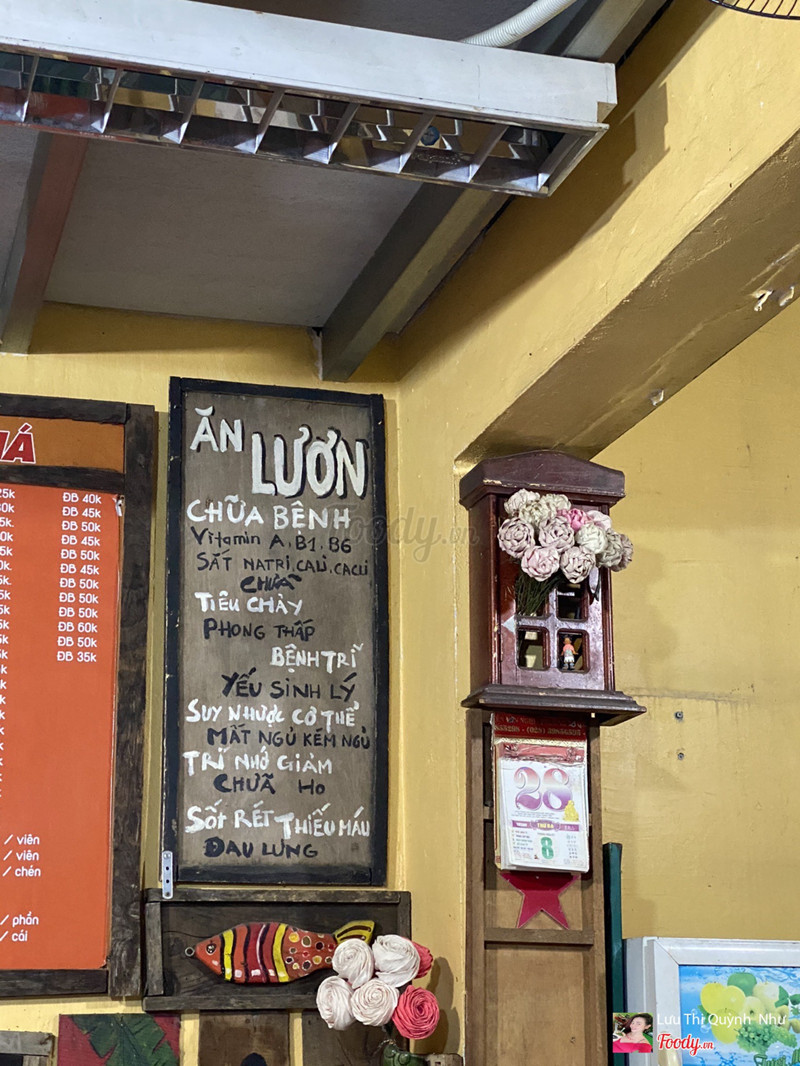 ĂN
LƯƠN
CHỮA BỆNH
Vitamin A, B1, B6
SẮT NATRI, CALI, CACLI
CHỮA
TIÊU CHẢY
PHONG THẤP
BỆNH TRĨ
YẾU SINH LÝ
SUY NHƯỢC CƠ THỂ
MẤT NGỦ KÉM NGỦ
TRÍ NHỚ GIẢM
CHỮA HO
SỐT RÉT THIẾU MÁU
ĐAU LƯNG
IÁ
25k ĐB 40k
ĐB 45k
ĐB 50k
ĐB 45k
ĐB 50k
ĐB 45k
ĐB 50k
ĐB 50k
ĐB 50k
ĐB 60k
ĐB 50k
ĐB 35k
/ viên
/ viên
/ chén
/ phần
/ cái
28
THỨ BA
8
Foody.vn
Lưu Thị Quỳnh Như
Foody.vn